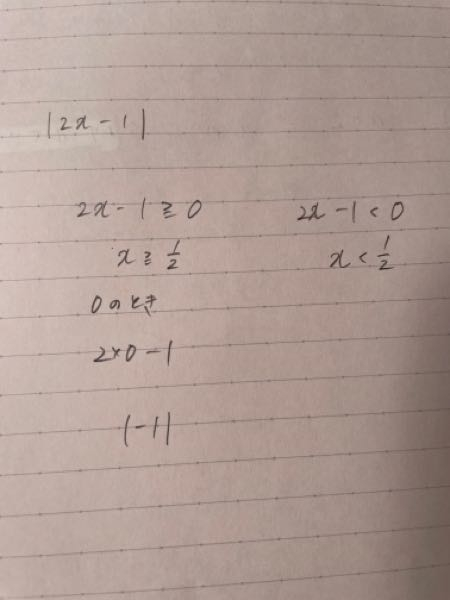 |2x-1|
2x-1≧0
2x-1<0
x≧1/2
x<1/2
0のとき
2×0-1
|-1|